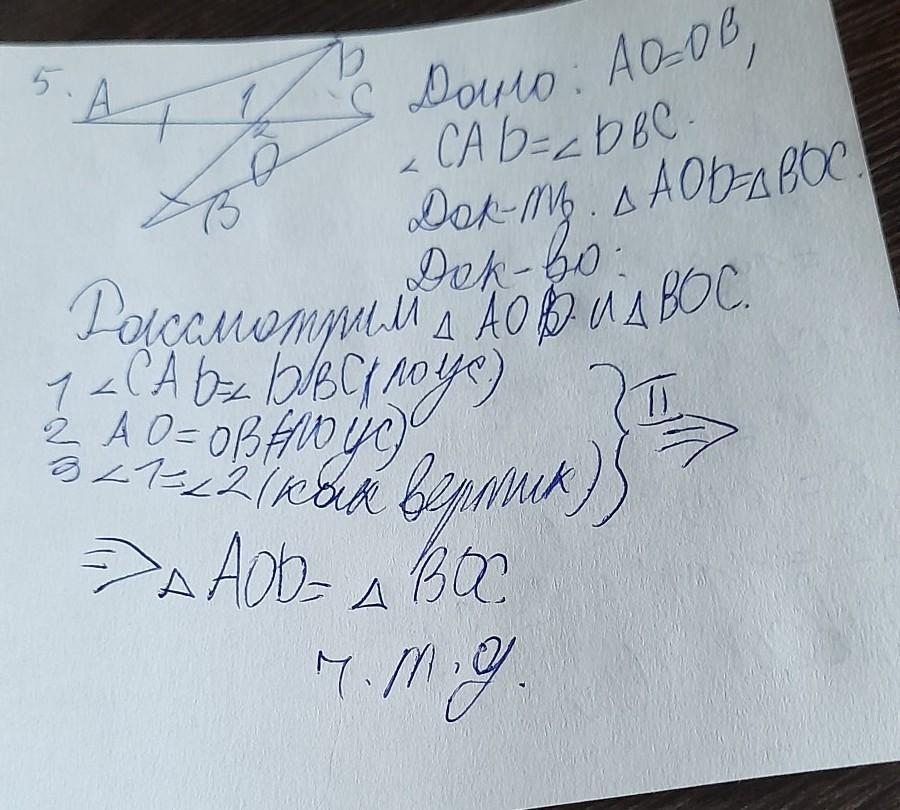 5.
A
D
1
C
2
O
B
Дано: AO=OB,
∠CAD=∠DBC.
Док-ть. △AOD=△BOC.
Док-во:
Рассмотрим △AOD и △BOC.
1 ∠CAD=∠DBC(по ус)
2 AO=OB(по ус)
3 ∠1=∠2(как вертик)
II
⇒
⇒△AOD=△BOC
ч.т.д.